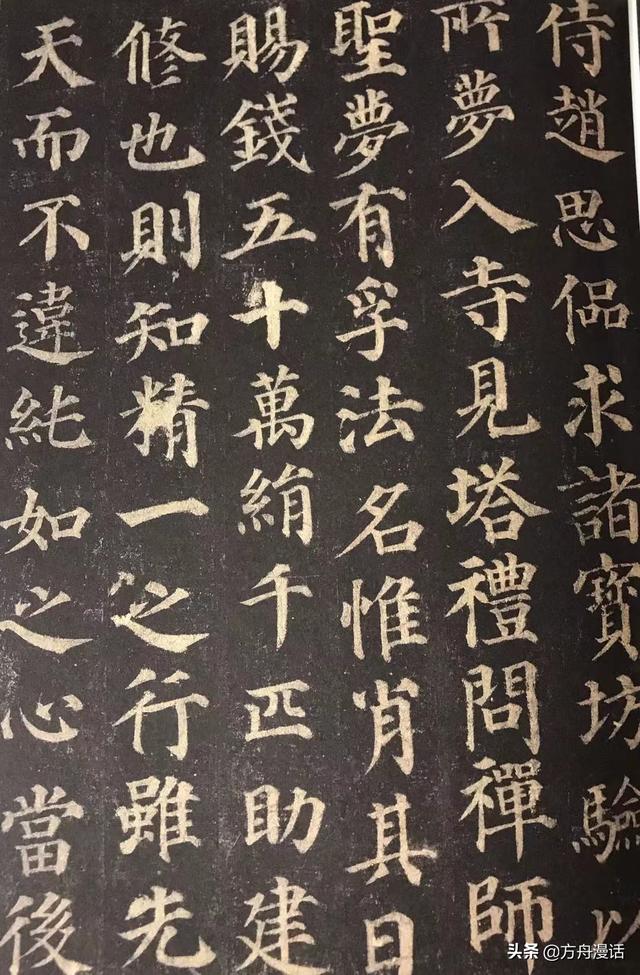 侍趙思偘求諸寶坊驗以
所夢入寺見塔禮問禪師
聖夢有孚法名惟肖其日
賜錢五十萬絹千匹助建
修也則知精一之行雖先
天而不違純如之心當後
头条@方舟漫话